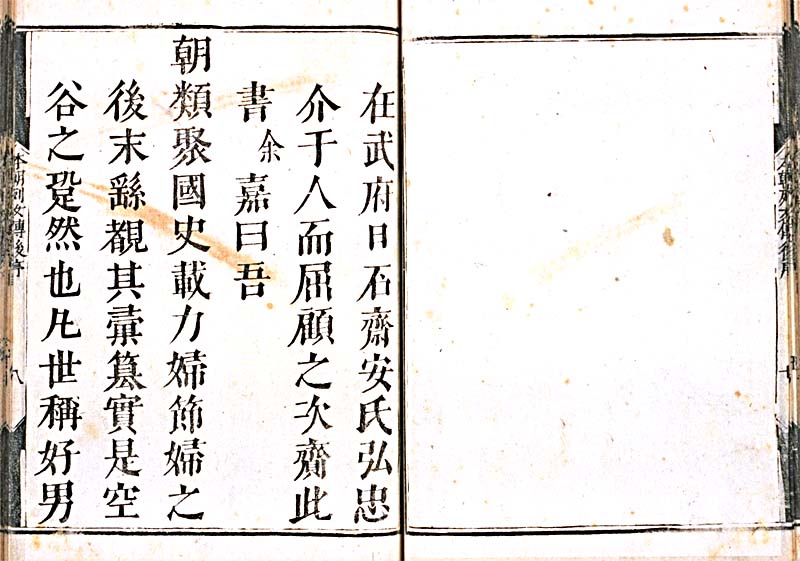 本朝列女傳後序
在武府日石齋安氏弘忠
介于人而屈顧之次齎此
書余嘉曰吾
朝類聚國史載力婦節婦之
後末繇覩其彙纂實是空
谷之跫然也凢世稱好男
本朝列女傳後序
八